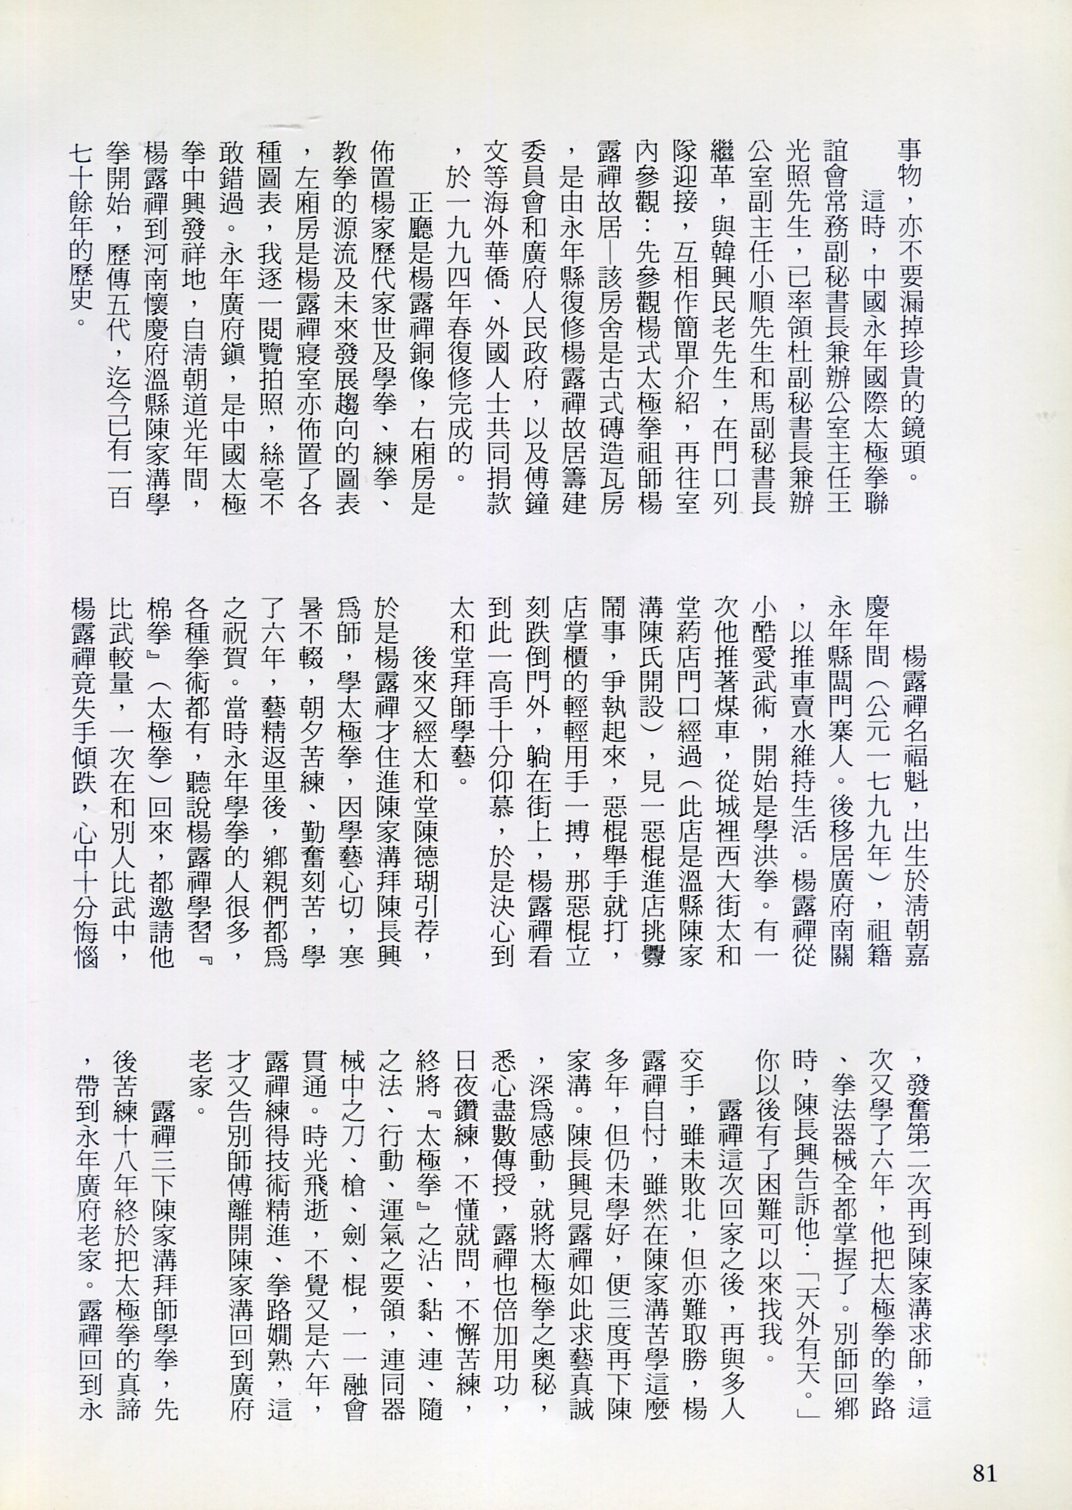 事物，亦不要漏掉珍貴的鏡頭。
這時，中國永年國際太極拳聯
誼會常務副秘書長兼辦公室主任王
光照先生，已率領杜副秘書長兼辦
公室副主任小順先生和馬副秘書長
繼革，與韓興民老先生，在門口列
隊迎接，互相作簡單介紹，再往室
內參觀：先參觀楊式太極拳祖師楊
露禪故居—該房舍是古式磚造瓦房
，是由永年縣復修楊露禪故居籌建
委員會和廣府人民政府，以及傅鐘
文等海外華僑、外國人士共同捐款
，於一九九四年春復修完成的。
正廳是楊露禪銅像，右廂房是
佈置楊家歷代家世及學拳、練拳、
教拳的源流及未來發展趨向的圖表
，左廂房是楊露禪寢室亦佈置了各
種圖表，我逐一閱覽拍照，絲毫不
敢錯過。永年廣府鎮，是中國太極
拳中興發祥地，自淸朝道光年間，
楊露禪到河南懷慶府溫縣陳家溝學
拳開始，歷傳五代，迄今已有一百
七十餘年的歷史。
楊露禪名福魁，出生於淸朝嘉
慶年間（公元一七九九年），祖籍
永年縣閻門寨人。後移居廣府南關
，以推車賣水維持生活。楊露禪從
小酷愛武術，開始是學洪拳。有一
次他推著煤車，從城裡西大街太和
堂葯店門口經過（此店是溫縣陳家
溝陳氏開設），見一惡棍進店挑釁
鬧事，爭執起來，惡棍舉手就打，
店掌櫃的輕輕用手一搏，那惡棍立
刻跌倒門外，躺在街上，楊露禪看
到此一高手十分仰慕，於是決心到
太和堂拜師學藝。
後來又經太和堂陳德瑚引荐，
於是楊露禪才住進陳家溝拜陳長興
爲師，學太極拳，因學藝心切，寒
暑不輟，朝夕苦練、勤奮刻苦，學
了六年，藝精返里後，鄉親們都爲
之祝賀。當時永年學拳的人很多，
各種拳術都有，聽說楊露禪學習『
棉拳』（太極拳）回來，都邀請他
比武較量，一次在和別人比武中，
楊露禪竟失手傾跌，心中十分悔惱
，發奮第二次再到陳家溝求師，這
次又學了六年，他把太極拳的拳路
、拳法器械全都掌握了。別師回鄉
時，陳長興告訴他：「天外有天。」
你以後有了困難可以來找我。
露禪這次回家之後，再與多人
交手，雖未敗北，但亦難取勝，楊
露禪自忖，雖然在陳家溝苦學這麼
多年，但仍未學好，便三度再下陳
家溝。陳長興見露禪如此求藝真誠
，深爲感動，就將太極拳之奧秘，
悉心盡數傳授，露禪也倍加用功，
日夜鑽練，不懂就問，不懈苦練，
終將『太極拳』之沾、黏、連、隨
之法、行動、運氣之要領，連同器
械中之刀、槍、劍、棍，一一融會
貫通。時光飛逝，不覺又是六年，
露禪練得技術精進、拳路嫻熟，這
才又告別師傅離開陳家溝回到廣府
老家。
露禪三下陳家溝拜師學拳，先
後苦練十八年終於把太極拳的真諦
，帶到永年廣府老家。露禪回到永
81